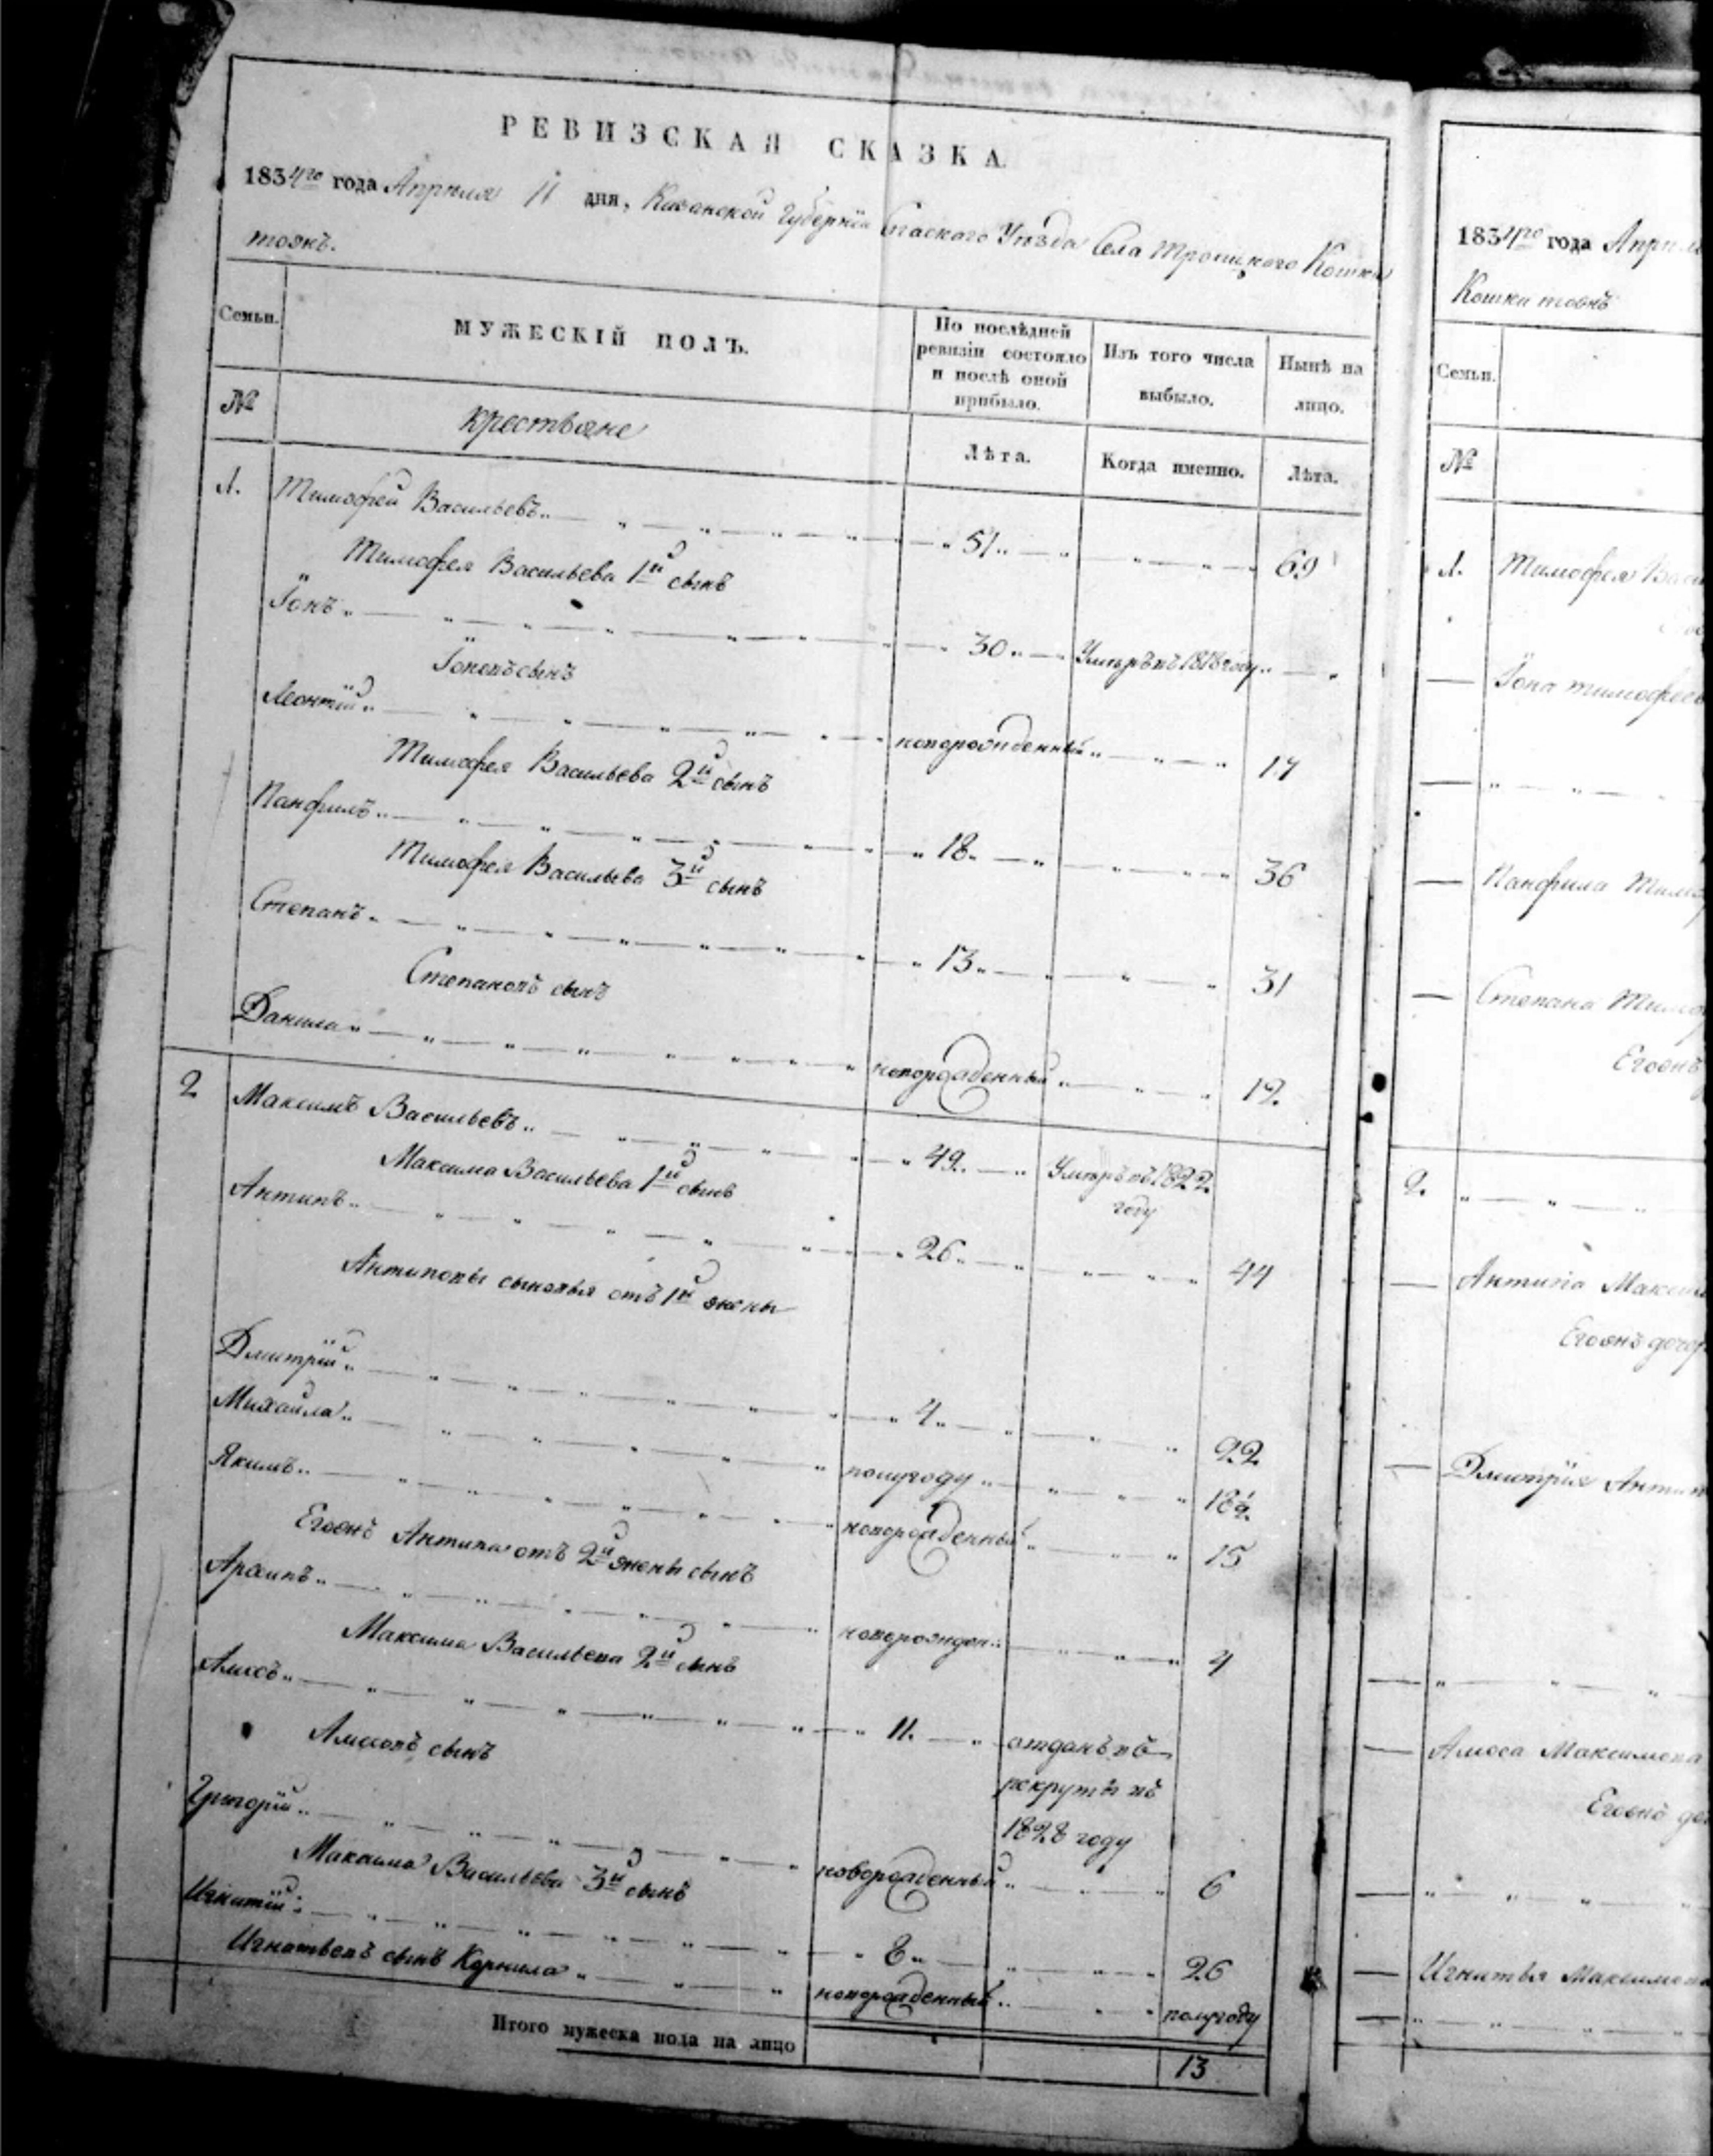 РЕВИЗСКАЯ СКАЗКА
1834го года Апреля 11 дня, Казанской Губернiи Спаскаго Уѣзда Села Троицкаго Кошки
тожъ.
Семьи. МУЖЕСКIЙ ПОЛЪ. По послѣдней ревизiи состояло и послѣ оной прибыло. Изъ того числа выбыло. Нынѣ на лицо.
№ крестьяне Лѣта. Когда именно. Лѣта.
1. Тимофей Васильевъ 51 69
Тимофея Васильева 1й сынъ
Iонъ 30 Умеръ въ 1818 году
Iоневъ сынъ
Леонтiй новорожденный 17
Тимофея Васильева 2й сынъ
Панфилъ 18 36
Тимофея Васильева 3й сынъ
Степанъ 13 31
Степановъ сынъ
Данила новорожденный 12
2 Максимъ Васильевъ 49 Умеръ въ 1822 году
Максима Васильева 1й сынъ
Антипъ 26 44
Антиповы сыновья отъ 1й жены
Дмитрiй 4 22
Михайла полугоду 18½
Якимъ новорожденный 15
Егожъ Антипа отъ 2й жены сынъ
Архипъ новорожден 4
Максима Васильева 2й сынъ
Амосъ 11 отданъ въ
Амосовъ сынъ рекруты въ
1828 году
Григорiй новорожденный 6
Максима Васильева 3й сынъ
Игнатiй 8 26
Игнатьевъ сынъ Корнила новорожденный полугоду
Итого мужеска пола на лицо 13
1834го года Апрел
Кошки тожъ
Семьи.
№
1. Тимофея Васи
Iона тимофеев
Панфила Тимо
Степана Тимо
Егожъ
2.
Антипа Максим
Егожъ дочер
Дмитрiя Антип
Амоса Максимова
Егожъ до
Игнатья Максимова